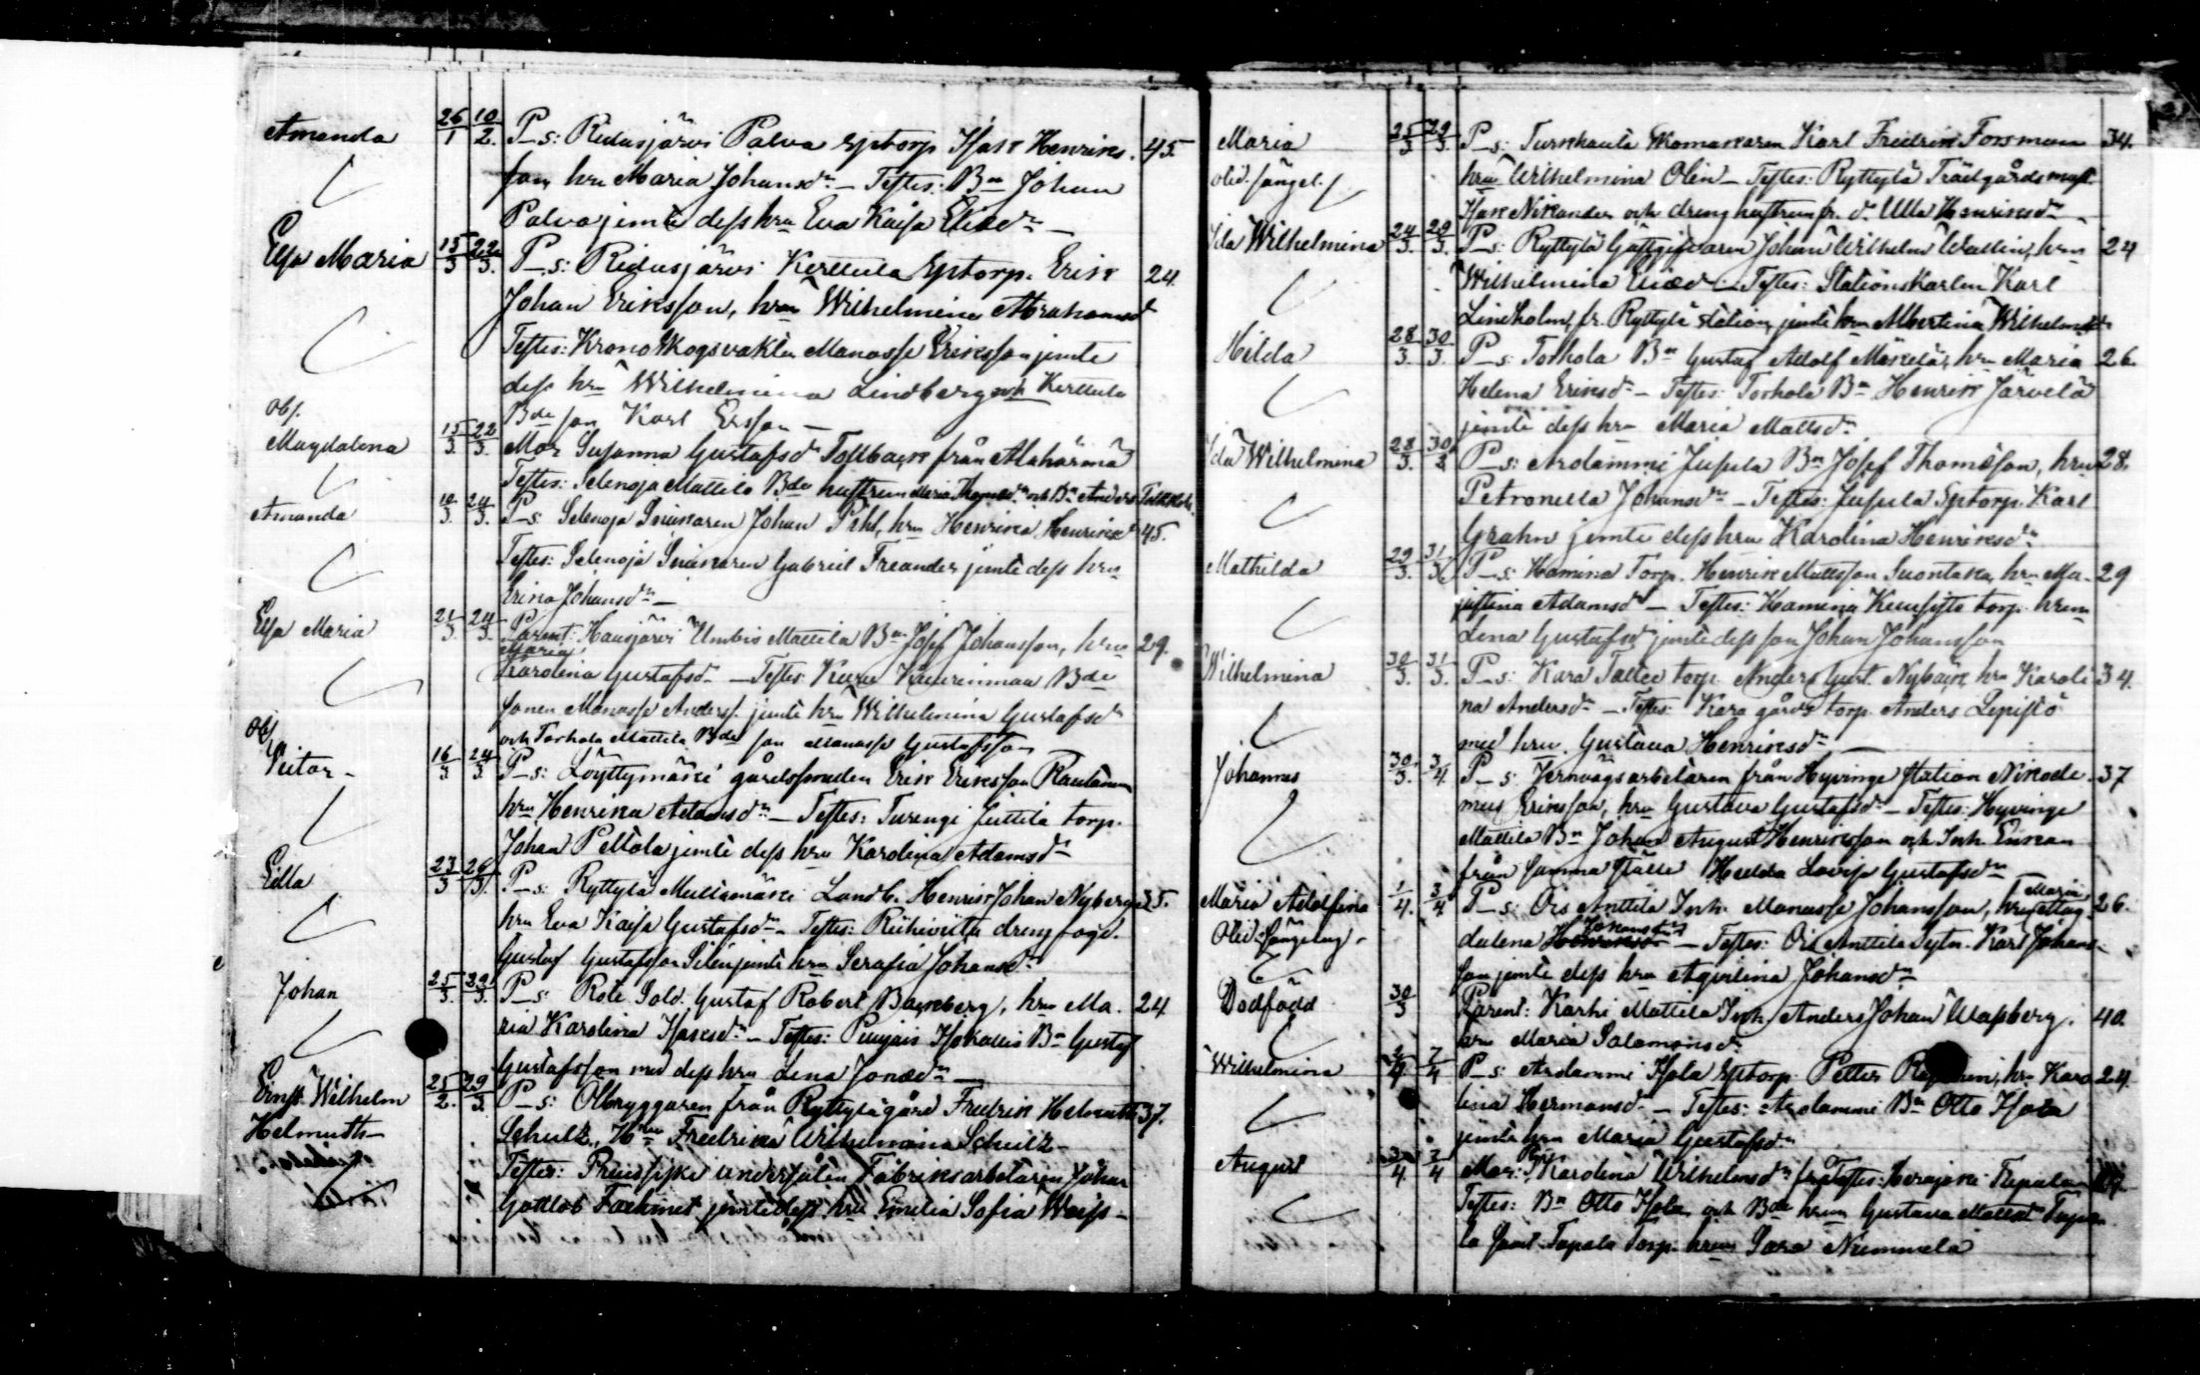 Amanda 26/1 10/2. P_s: Ridasjärvi Palva Sptorp Isak Henriks- 45.
son, hru Maria Johansdr. – Testes: Bn Johan
Palva jemte dess hru Eva Kaisa Eliædr –
Elsa Maria 15/3 22/3. P_s: Ridasjärvi Kerttula Sptorp. Erik 24.
Johan Eriksson, hru Wilhelmina Abrahamsd
Testes: Kronoskogsvakten Manasse Eriksson jemte
dess hru Wilhelmina Lindberg och Kerttula
Bde son Karl Ersson –
Obs.
Magdalena 15/3 22/3. Mor Susanna Gustafsdr Tollback från Alahärmä
Testes: Selenoja Mattila Bde hustrun Maria Thomasdr och Dn Anders
Amanda 19/3. 24/3. P_s: Selenoja Snickaren Johan Pihl, hru Henrika Henriksd 45.
Testes: Selenoja Snickaren Gabriel Treander jemte dess hru
Erika Johansdr –
Elsa Maria 21/3 24/3. Parent: Hausjärvi Umbis Mattila Bn Josef Johansson, hru 29.
Maria
Karolina Gustafsdr – Testes: Kuru Kuurinmaa Bde
sonen Manasse Anders. jemte hru Wilhelmina Gustafsdr
och Torhola Mattila Bde son Manasse Gustafsson
Obs
Viktor – 16/3 24/3. P_s: Löyttymäki gårdssmeden Erik Eriksson
hru Henrika Adamsdr – Testes: Turengi Juttila torp.
Johan Peltola jemte dess hru Karolina Adamsdr
Edla 23/3 26/3. P_s: Ryttylä Multamäki Landb. Henrik Johan Nyberg 35.
hru Eva Kaisa Gustafsdr – Testes: drengfogd.
Gustaf Gustafsson Silén jemte hru Serafia Johansdr
Johan 25/3. 29/3. P_s: Rote Sold. Gustaf Robert Backberg, hru Ma- 24
ria Karolina Isaksdr – Testes: Punjais Isokallis Bn Gustaf
Gustafsson med dess hru Lena Jonædr –
Ernst Wilhelm 25/2. 29/3. P_s: Ölbryggaren från Ryttylä gård Fredrik Helmuth 37.
Helmuth – Schultz, Hru Fredrika Wilhelmina Schultz –
Testes: Preussiske undersåten Fabriksarbetaren Johan
Gottlob jemte dess hru Emilia Sofia Weiss –
Maria 25/3 29/3. P_s: Turkhauta Skomakaren Karl Fredrik Forsman 34.
olid. sängel. hru Wilhelmina Olin – Testes: Ryttylä Trädgårdsmäst.
Isak Nikander och dreng hustrun fr. d:o Ulla Henriksdr –
Ida Wilhelmina 24/3. 29/3. P_s: Ryttylä Gästgifvaren Johan Wilhelm Wallin, hru 24
Wilhelmina Eliæd – Testes: Stationskarlen Karl
Lindholm, fr. Ryttylä station, jemte hru Albertina Wilhelmsdr
Hilda 28/3. 30/3. P_s: Torhola Bn Gustaf Adolf Mäkelä, hru Maria 26.
Helena Eriksdr – Testes: Torhola Bn Henrik Järvelä
jemte dess hru Maria Mattsdr
Ida Wilhelmina 28/3. 30/3 P_s: Arolammi Jusula Bn Josef Thomæson, hru 28.
Petronella Johansdr – Testes: Jusula Sptorp. Karl
Grahn jemte dess hru Karolina Henriksdr
Mathilda 29/3. 31/3. P_s: Hamina Torp. Henrik Mattsson Suontaka, hru Ma- 29
jistina Adamsdr – Testes: Hamina torp. hrun
Lena Gustafsdr jemte dess son Johan Johansson
Wilhelmina 30/3. 31/3. P_s: Kara Torp Anders Gust. Nybäck hru Karoli- 34.
na Andersdr – Testes: Kara gårds torp. Anders Lepistö
med hru. Gustava Henriksdr –
Johannes 30/3. 3/4. P_s: Jernvägsarbetaren från Hyvinge station Nikode- 37
mus Eriksson, hru Gustava Gustafsdr – Testes: Hyvinge
Mattila Bn Johan August Henriksson och Inh. Enkan
från samma ställe Hedda Lovisa Gustafsdr
Maria Adolfina 1/4. 3/4 P_s: Ois Anttila Inh. Manasse Johansson, hru Maria Mag- 26.
Olid. Sängelag. dalena Henriksd Johansdr – Testes: Ois Anttila Sytn. Karl Johans-
son jemte dess hru Aqvilina Johansdr
Dödfödd 30/3 Parent: Karhi Mattila Inh. Anders Johan Wassberg, 40.
hru Maria Salomonsdr
Wilhelmina 2/4 7/4 P_s: Arolammi Isola Sptorp. Petter hru Karo- 24.
lina Hermansdr – Testes: Arolammi Bn Otto Isola
jemte hru Maria Gustafsdr
August 4 7/4 Mor: Karolina Wilhelmsdr
Testes: Bn Otto Isola och Bde hrun Gustava Mattsdr Tapa-
la samt Tapala Torp. hrun Sara Nummela